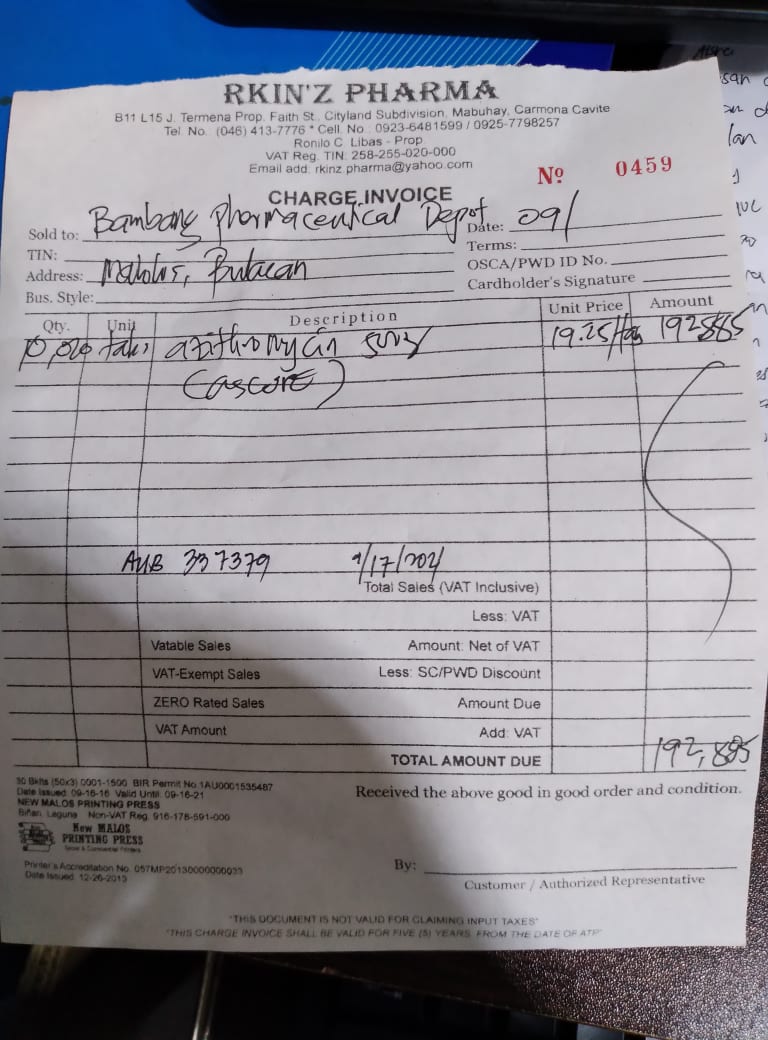 RKIN'Z PHARMA
B11 L15 J. Termena Prop. Faith St., Cityland Subdivision, Mabuhay, Carmona Cavite
Tel No. (046) 413-7776 * Cell. No.: 0923-6481599 / 0925-7798257
Ronilo C. Libas - Prop.
VAT Reg. TIN: 258-255-020-000
Email add: rkinz.pharma@yahoo.com
Nº 0459
CHARGE INVOICE
Sold to: Bambang Pharmaceutical Depot Date: 09/
TIN: Terms:
Address: Malolos, Bulacan OSCA/PWD ID No.
Bus. Style: Cardholder's Signature
Qty. Unit Description Unit Price Amount
10,020 tabs azithromycin 500mg 19.25/tab 192885
(ascore)
AUB 337379 9/17/2021
Total Sales (VAT Inclusive)
Less: VAT
Vatable Sales Amount: Net of VAT
VAT-Exempt Sales Less: SC/PWD Discount
ZERO Rated Sales Amount Due
VAT Amount Add: VAT
TOTAL AMOUNT DUE 192,885
30 Bklts (50x3) 0001-1500 BIR Permit No. 1AU0001535487
Date Issued: 09-16-16 Valid Until: 09-16-21
NEW MALOS PRINTING PRESS
Biñan, Laguna Non-VAT Reg. 916-178-591-000
New MALOS
PRINTING PRESS
Printer's Accreditation No. 057MP20130000000033
Date Issued: 12-26-2013
Received the above good in good order and condition.
By:
Customer / Authorized Representative
"THIS DOCUMENT IS NOT VALID FOR CLAIMING INPUT TAXES"
"THIS CHARGE INVOICE SHALL BE VALID FOR FIVE (5) YEARS FROM THE DATE OF ATP"